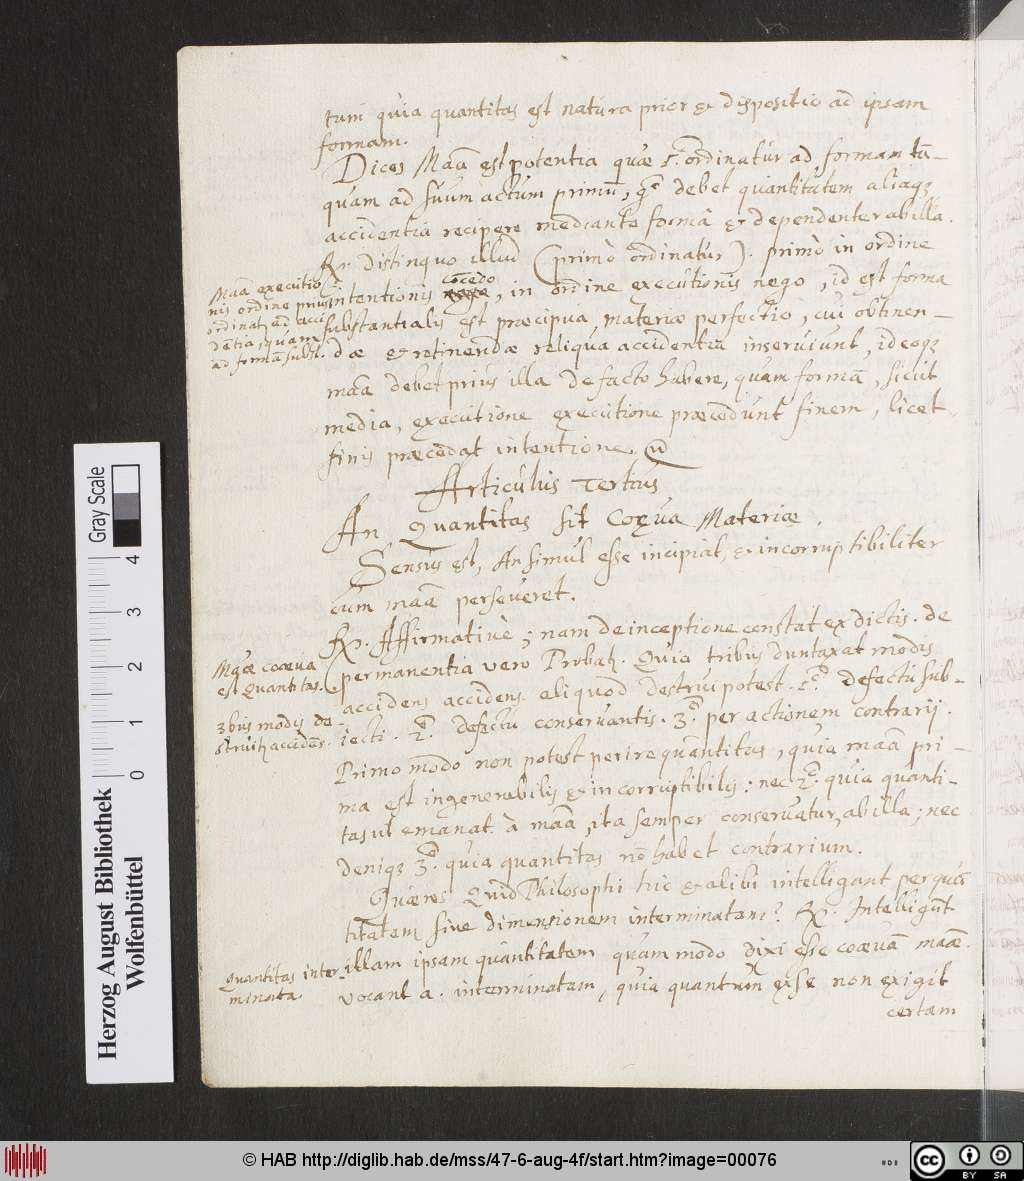 tum quia quantitas est natura prior et dispositio ad ipsam
formam.
Dices Māa est potentia quæ 1º ordinatur ad formam tā-
quam ad suum actum primū, debet quantitatem aliaqꝫ
accidentia recipere mediante formâ et dependenter ab illa.
Rx. distinquo illud (primò ordinatur). primò in ordine
intentionis cōcedo, in ordine executionis nego, id est forma
substantialis est præcipua materiæ perfectio, cui obtinen-
dæ et retinendæ reliqua accidentia inserviunt, ideoqꝫ
māa debet prius illa de facto habere, quam formā, sicut
media, executione executione præcedunt finem, licet
finis præcedat intentione.
Māa executio
nis ordine prius
ordinatꝫ ad acci
dētia, quam
ad formā subst.
Articulus Tertius
An Quantitas sit Coæva Materiæ.
Sensus est, An simul esse incipiat, et incorruptibiliter
cum māa perseveret.
Rx. Affirmativè; nam de inceptione constat ex dictis. de
permanentia vero Probatꝫ. Quia tribus duntaxat modis
accidens accidens aliquod destrui potest. 1º. defectu sub-
jecti. 2º. defectu conservantis. 3º. per actionem contrarij.
Primo modo non potest perire quantitas, quia māa pri-
ma est ingenerabilis et incorruptibilis; nec 2º. quia quanti-
tas ut emanat à māa, ita semper conservatur ab illa; nec
deniqꝫ 3º. quia quantitas nō habet contrarium.
Māæ coæva
est Quantitas.
3bus modis de-
struitꝫ accidēs.
Quæres Quid Philosophi hic et alibi intelligant per quā
titatem sive dimensionem interminatam? Rx. Intelligūt
illam ipsam quantitatem quam modo dixi esse coævā māæ.
vocant a. interminatam, quia quantum ex se non exigit
certam
Quantitas inter-
minata.
Gray Scale
0 1 2 3 4
Herzog August Bibliothek
Wolfenbüttel
© HAB http://diglib.hab.de/mss/47-6-aug-4f/start.htm?image=00076
cc BY SA